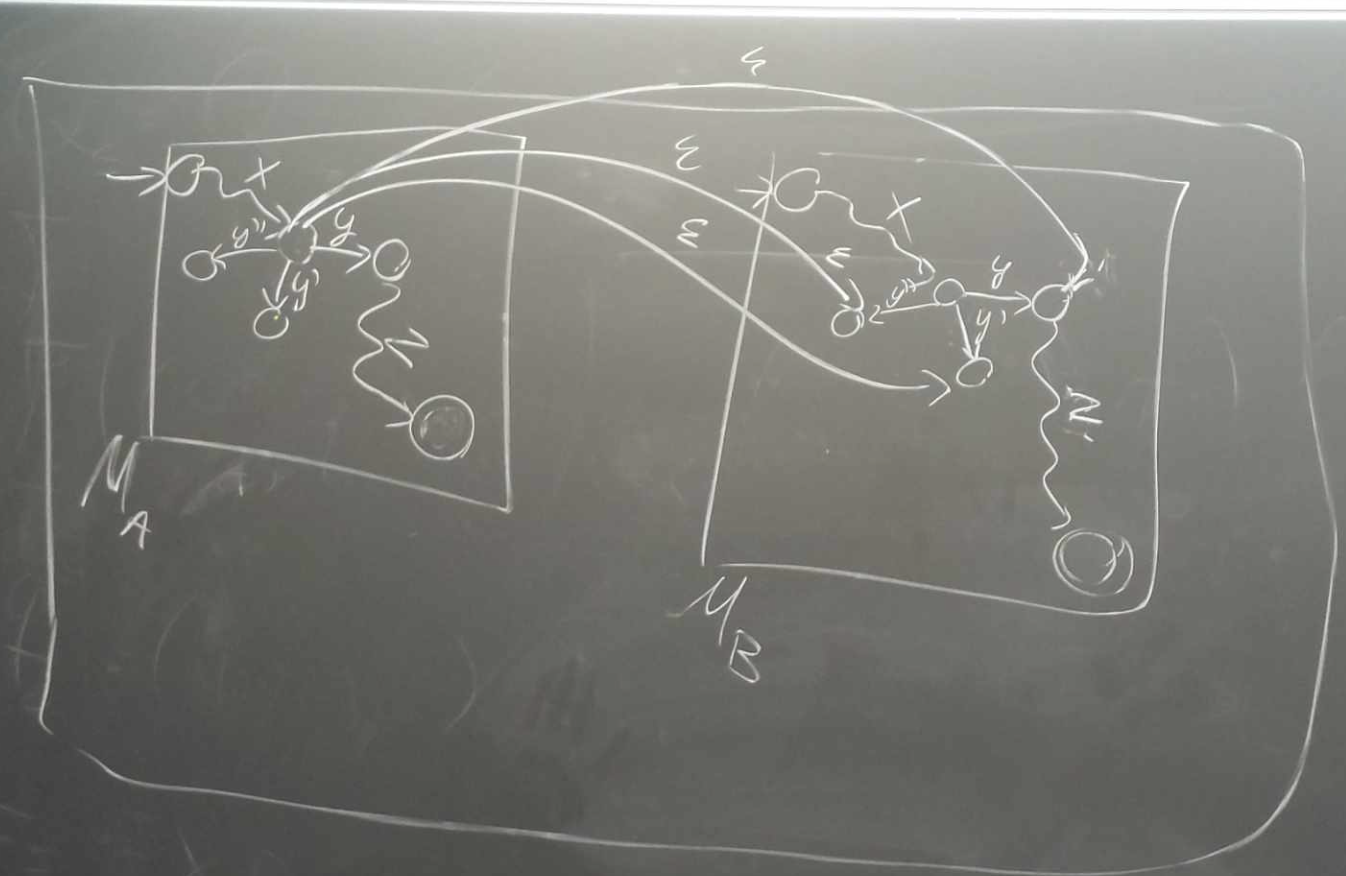 ε
ε
ε
ε
X
y''
y
y'
z
M
A
X
y''
y
y'
z
M
B